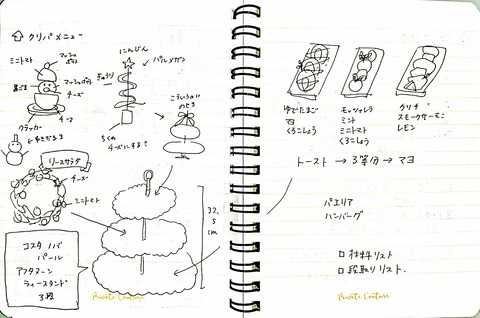 クリパメニュー
ミニトマト
マッシュポテト
マッシュポテト
黒ごま
チーズ
チーズ
クラッカー
にんじん
パルメザン
きゅうり
ちくわ
チーズにする?
こういうふうに
のせる
リースサラダ
チーズ
ミニトマト
コスタ ノバ
パール
アフタヌーン
ティースタンド
3段
32.5cm
Private Couture
ゆでたまご
マヨ
くろこしょう
モッツァレラ
ミント
ミニトマト
くろこしょう
クリチ
スモークサーモン
レモン
トースト → 3等分 → マヨ
パエリア
ハンバーグ
□ 材料リスト
□ 段取りリスト.
Private Couture